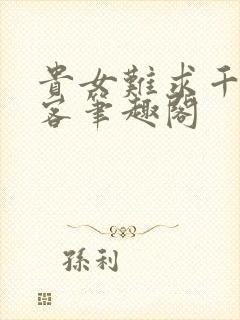 貴女難求千
客筆趣閣
孫利